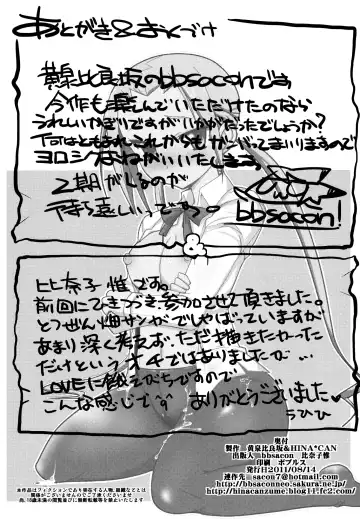 あとがき&おくづけ
黄泉比良坂のbbsaconです
今作も楽しんでいただけたのなら
うれしいかぎりですがいかがだったでしょうか?
何はともあれこれからもがんばってまいりますので
ヨロシクおねがいいたします。
2期がくるのが
待ち遠しいっです。
bbsacon!
&
比奈子惟です。
前回にひきつづき参加させて頂きました。
とうぜん畑サンがでしゃばっていますが
あまり深く考えず、ただ描きたかった
だけというオチではありましたが…
LOVEに飢えがちですので
こんな感じです ありがとうございました♥
うひひ
奥付
製作 黄泉比良坂&HINA*CAN
出版人 bbsacon 比奈子惟
印刷 ポプルス
発行日2011/08/14
連作先 sacon7@hotmail.com
http://bbsaconneo.sakura.ne.jp/
http://hinacanzume.blog11.fc2.com/
本作品はフィクションであり実在する人物、組織などとは
関係がございませんのでご了承下さいませ。
尚、18歳未満の閲覧並びに無断転載なども禁止でございます。